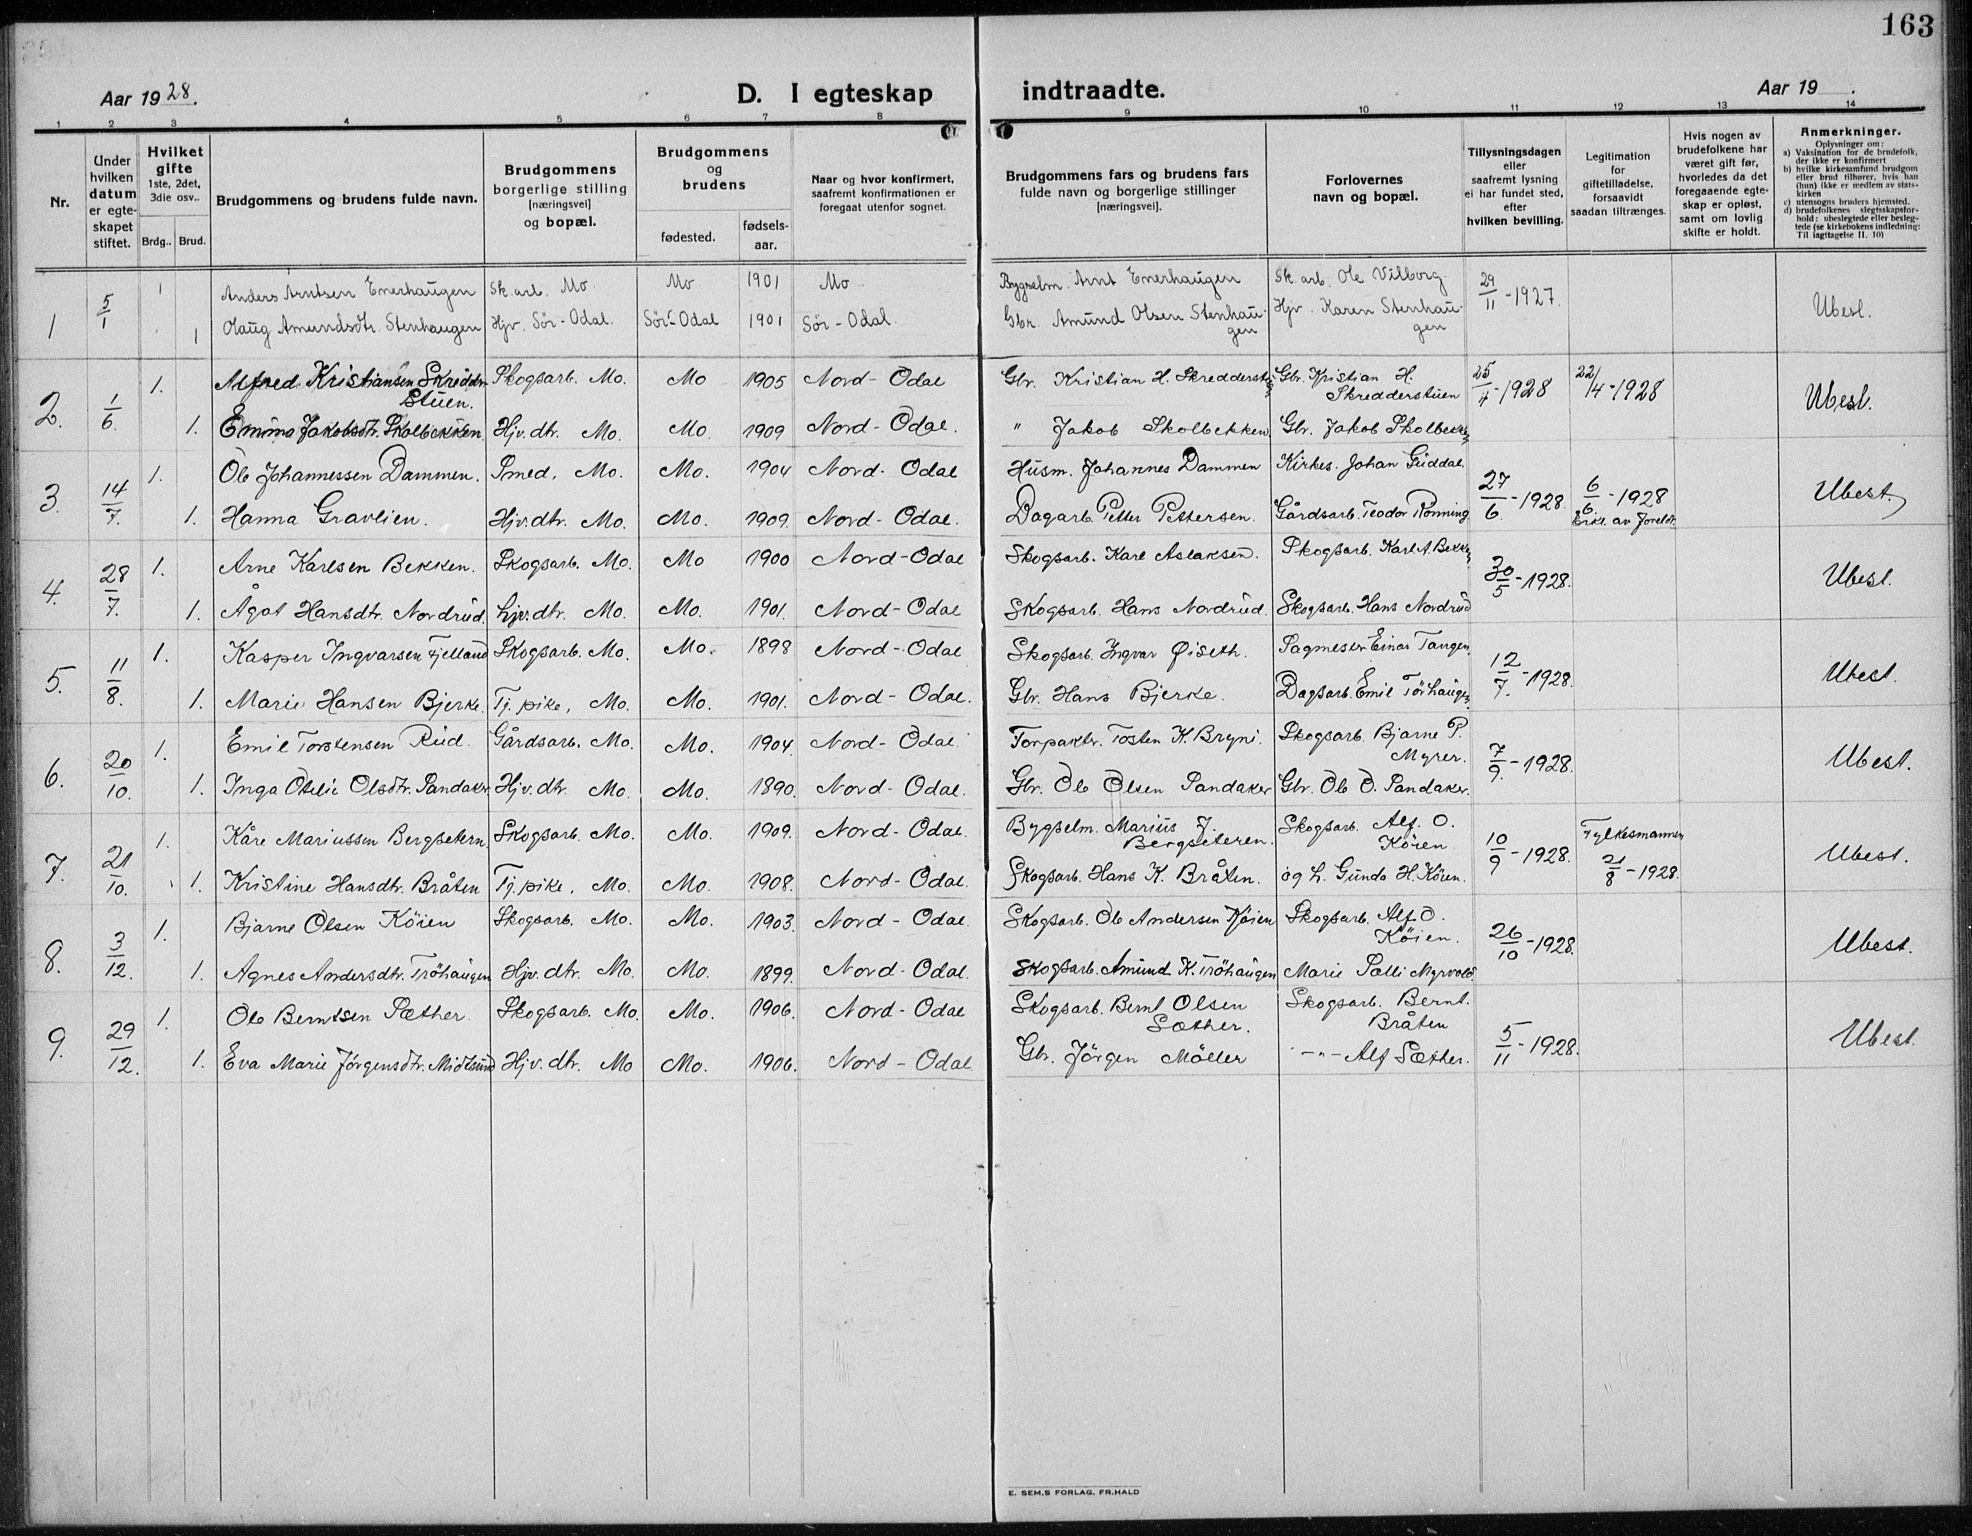 163
Aar 1928.
D. I egteskap indtraadte.
Aar 19 .
1 2 3 4 5 6 7 8 9 10 11 12 13 14
Nr.
Under hvilken datum er egteskapet stiftet.
Hvilket gifte 1ste, 2det, 3die osv..
Brdg.. Brud.
Brudgommens og brudens fulde navn.
Brudgommens borgerlige stilling [næringsvei] og bopæl.
Brudgommens og brudens
fødested.
fødsels-aar.
Naar og hvor konfirmert, saafremt konfirmationen er foregaat utenfor sognet.
Brudgommens fars og brudens fars fulde navn og borgerlige stillinger [næringsvei].
Forlovernes navn og bopæl.
Tillysningsdagen eller saafremt lysning ei har fundet sted, efter hvilken bevilling.
Legitimation for giftetilladelse, forsaavidt saadan tiltrænges.
Hvis nogen av brudefolkene har været gift før, hvorledes da det foregaaende egteskap er opløst, samt om lovlig skifte er holdt.
Anmerkninger.
Oplysninger om:
a) Vaksination for de brudefolk, der ikke er konfirmert
b) hvilke kirkesamfund brudgom eller brud tilhører, hvis han (hun) ikke er medlem av statskirken
c) utensogns bruders hjemsted.
d) brudefolkenes slegtsskapsforhold: ubeslegtede eller beslegtede (se kirkebokens indledning: Til iagttagelse II. 10)
1 5/1 1 Anders Arntsen Enerhaugen Sk. arb. Mo Mo 1901 Mo Bygselm. Arnt Enerhaugen Sk. arb. Ole Vilborg 29/11 - 1927. Ubesl.
1 Olaug Amundsdtr. Stenhaugen Hjv. Sör-Odal. Sör-Odal 1901 Sör-Odal. Gbr. Amund Olsen Stenhaugen Hjv. Karen Stenhaugen
2. 1/6. 1. Alfred Kristiansen Skredderstuen. Skogsarb. Mo. Mo 1905 Nord-Odal Gbr. Kristian H. Skredderst Gbr. Kristian H. Skredderstuen 25/4 - 1928 22/4 - 1928 Ubesl.
1. Emma Jakobsdtr. Skolbekken Hjv. dtr. Mo. Mo. 1909 Nord-Odal. " Jakob Skolbekken Gbr. Jakob Skolbekken
3. 14/7. 1. Ole Johannessen Dammen. Smed, Mo. Mo. 1904 Nord-Odal Husm. Johannes Dammen Kirkes. Johan Guddal 27/6 - 1928. 6/6. - 1928 Erkl. av foreldr. Ubest.
1. Hanna Gravlien. Hjv. dtr. Mo. Mo. 1909. Nord-Odal. Dagarb. Petter Pettersen. Gårdsarb. Teodor Rönning
4. 28/7. 1. Arne Karlsen Bekken. Skogsarb. Mo. Mo 1900 Nord-Odal Skogsarb. Karl Aslaksen. Skogsarb. Karl A. Bekken 30/5 - 1928. Ubest.
1. Ågot Hansdtr. Nordrud. hjv. dtr. Mo. Mo. 1901. Nord-Odal Skogsarb. Hans Nordrud. Skogsarb. Hans Nordrud
5. 11/8. 1. Kasper Ingvarsen Fjelland Skogsarb. Mo. Mo. 1898 Nord-Odal Skogsarb. Ingvar Øiseth. Sagmester Einar Tangen 12/7. - 1928. Ubest.
1. Marie Hansen Bjerke. Tj. pike, Mo. Mo. 1901. Nord-Odal. Gbr. Hans Bjerke. Dagsarb. Emil
6. 20/10. 1. Emil Torstensen Rud. Gårdsarb. Mo. Mo. 1904. Nord-Odal. Forpaktr. Tosten K. Bryni. Skogsarb. Bjarne P. Myrer. 7/9. - 1928. Ubest.
1. Inga Otelie Olsdtr. Sandaker Hjv. dtr. Mo. Mo. 1890. Nord-Odal. Gbr. Ole Olsen Sandaker Gbr. Ole O. Sandaker.
7. 21/10. 1. Kåre Mariussen Bergsetern Skogsarb. Mo. Mo. 1909. Nord-Odal. Bygselm. Marius J. Bergseteren. Skogsarb. Alf. O. Köien. 10/9 - 1928. Fylkesmannen 21/8 - 1928. Ubest.
1. Kristine Hansdtr. Bråten Tj. pike. Mo. Mo. 1908. Nord-Odal. Skogsarb. Hans K. Bråten. og h. Gunda H. Köien.
8. 3/12. 1. Bjarne Olsen Köien Skogsarb. Mo. Mo. 1903. Nord-Odal. Skogsarb. Ole Andersen Köien Skogsarb. Alf O. Köien. 26/10 - 1928. Ubest.
1. Agnes Andersdtr. Tröhaugen Hjv. dtr. Mo. Mo. 1899. Nord-Odal. Skogsarb. Amund K. Tröhaugen Marie Myrvold
9. 29/12. 1. Ole Berntsen Sæther. Skogsarb. Mo. Mo. 1906. Nord-Odal Skogsarb. Bernt Olsen Sæther. Skogsarb. Bernt. Bråten 5/11 - 1928. Ubest.
1. Eva Marie Jörgensdtr. Midtsund Hjv. dtr. Mo Mo. 1906. Nord-Odal. Gbr. Jörgen Möller -"- Alf Sæther.
E. SEM,S FORLAG, FR.HALD